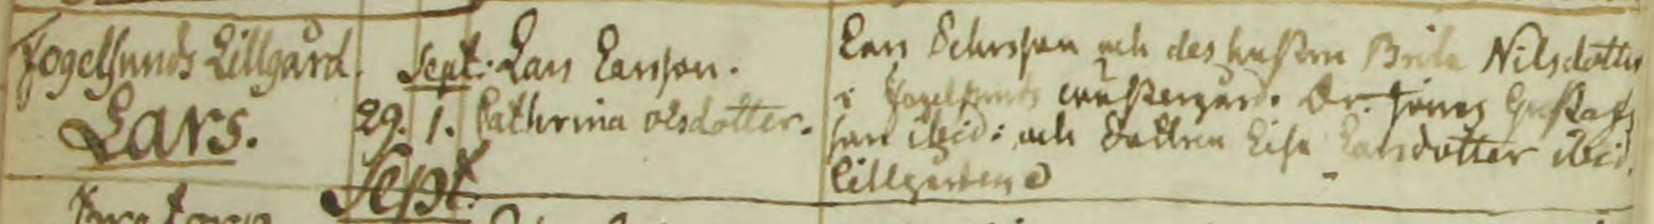 Fogelsunds Lillgård.
Lars.
Sept.
29. 1.
Sept.
Lars Larsson.
Cathrina olsdotter.
Lars Ersson och des hustru Brita Nilsdotter
i Fogelsunds Dr. Jöns Gustafs
son ibid: och Lisa Larsdotter ibid.
Lillgården